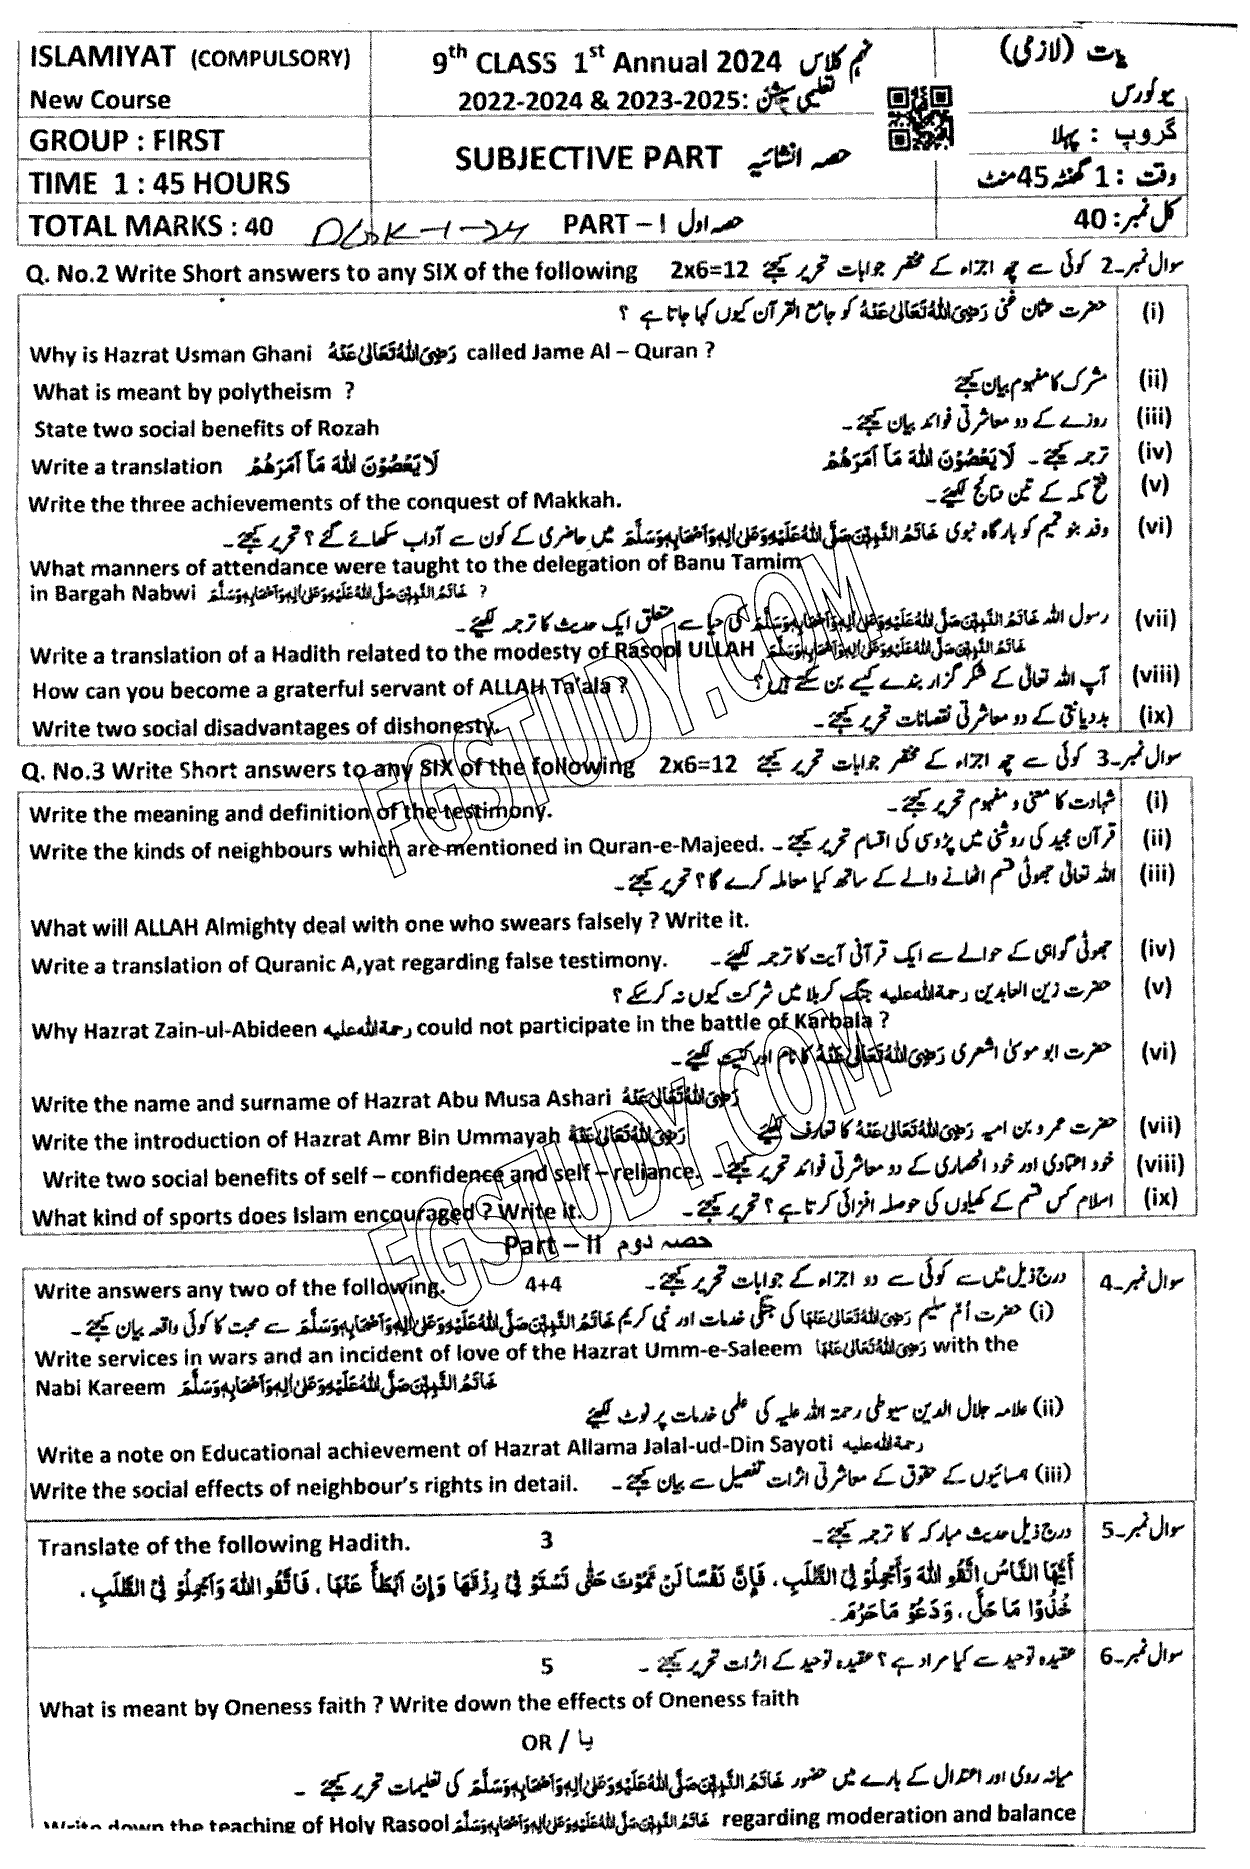 ISLAMIYAT (COMPULSORY)
9th CLASS 1st Annual 2024 نہم کلاس
یات (لازمی)
New Course
2022-2024 & 2023-2025: تعلیمی سیشن
یو کورس
GROUP : FIRST
گروپ : پہلا
SUBJECTIVE PART حصہ انشائیہ
TIME 1 : 45 HOURS
وقت : 1 گھنٹہ 45 منٹ
TOTAL MARKS : 40
PART – I حصہ اول
کل نمبر : 40
Q. No.2 Write Short answers to any SIX of the following 2x6=12 سوال نمبر۔2 کوئی سے چھ اجزاء کے مختصر جوابات تحریر کیجئے
(i) حضرت عثمان غنی رَضِیَ اللّٰهُ تَعَالٰی عَنْهُ کو جامع القرآن کیوں کہا جاتا ہے ؟
Why is Hazrat Usman Ghani رَضِیَ اللّٰهُ تَعَالٰی عَنْهُ called Jame Al – Quran ?
What is meant by polytheism ? (ii) مشرک کا مفہوم بیان کیجئے
State two social benefits of Rozah (iii) روزے کے دو معاشرتی فوائد بیان کیجئے۔
Write a translation لَا يَعْصُوْنَ اللّٰهَ مَآ اَمَرَهُمْ (iv) ترجمہ کیجئے۔ لَا يَعْصُوْنَ اللّٰهَ مَآ اَمَرَهُمْ
Write the three achievements of the conquest of Makkah. (v) فتح مکہ کے تین نتائج لکھئے۔
(vi) وفد بنو تمیم کو بارگاہ نبوی خَاتَمُ النَّبِيّٖنَ صَلَّى اللّٰهُ عَلَيْهِ وَعَلٰى اٰلِهٖ وَاَصْحَابِهٖ وَسَلَّمَ میں حاضری کے کون سے آداب سکھائے گئے ؟ تحریر کیجئے۔
What manners of attendance were taught to the delegation of Banu Tamim
in Bargah Nabwi خَاتَمُ النَّبِيّٖنَ صَلَّى اللّٰهُ عَلَيْهِ وَعَلٰى اٰلِهٖ وَاَصْحَابِهٖ وَسَلَّمَ ?
(vii) رسول اللہ خَاتَمُ النَّبِيّٖنَ صَلَّى اللّٰهُ عَلَيْهِ وَعَلٰى اٰلِهٖ وَاَصْحَابِهٖ وَسَلَّمَ کی حیا سے متعلق ایک حدیث کا ترجمہ لکھئے۔
Write a translation of a Hadith related to the modesty of Rasool ULLAH خَاتَمُ النَّبِيّٖنَ صَلَّى اللّٰهُ عَلَيْهِ وَعَلٰى اٰلِهٖ وَاَصْحَابِهٖ وَسَلَّمَ
How can you become a graterful servant of ALLAH Ta'ala ? (viii) آپ اللہ تعالٰی کے شکر گزار بندے کیسے بن سکتے ہیں؟
Write two social disadvantages of dishonesty. (ix) بددیانتی کے دو معاشرتی نقصانات تحریر کیجئے۔
Q. No.3 Write Short answers to any SIX of the following 2x6=12 سوال نمبر۔3 کوئی سے چھ اجزاء کے مختصر جوابات تحریر کیجئے
Write the meaning and definition of the testimony. (i) شہادت کا معنی و مفہوم تحریر کیجئے۔
Write the kinds of neighbours which are mentioned in Quran-e-Majeed. (ii) قرآن مجید کی روشنی میں پڑوسی کی اقسام تحریر کیجئے۔
(iii) اللہ تعالٰی جھوٹی قسم اٹھانے والے کے ساتھ کیا معاملہ کرے گا؟ تحریر کیجئے۔
What will ALLAH Almighty deal with one who swears falsely ? Write it.
Write a translation of Quranic A,yat regarding false testimony. (iv) جھوٹی گواہی کے حوالے سے ایک قرآنی آیت کا ترجمہ لکھئے۔
(v) حضرت زین العابدین رحمۃ اللہ علیہ جنگ کربلا میں شرکت کیوں نہ کر سکے ؟
Why Hazrat Zain-ul-Abideen رحمۃ اللہ علیہ could not participate in the battle of Karbala ?
(vi) حضرت ابو موسیٰ اشعری رَضِیَ اللّٰهُ تَعَالٰی عَنْهُ کا نام اور کنیت لکھئے۔
Write the name and surname of Hazrat Abu Musa Ashari رَضِیَ اللّٰهُ تَعَالٰی عَنْهُ
Write the introduction of Hazrat Amr Bin Ummayah رَضِیَ اللّٰهُ تَعَالٰی عَنْهُ (vii) حضرت عمرو بن امیہ رَضِیَ اللّٰهُ تَعَالٰی عَنْهُ کا تعارف لکھئے
Write two social benefits of self – confidence and self – reliance. (viii) خود اعتمادی اور خود انحصاری کے دو معاشرتی فوائد تحریر کیجئے۔
What kind of sports does Islam encouraged ? Write it. (ix) اسلام کس قسم کے کھیلوں کی حوصلہ افزائی کرتا ہے ؟ تحریر کیجئے۔
Part – II حصہ دوم
Write answers any two of the following. 4+4 سوال نمبر۔4 درج ذیل میں سے کوئی سے دو اجزاء کے جوابات تحریر کیجئے۔
(i) حضرت اُمّ سلیم رَضِیَ اللّٰهُ تَعَالٰی عَنْهَا کی جنگی خدمات اور نبی کریم خَاتَمُ النَّبِيّٖنَ صَلَّى اللّٰهُ عَلَيْهِ وَعَلٰى اٰلِهٖ وَاَصْحَابِهٖ وَسَلَّمَ سے محبت کا کوئی واقعہ بیان کیجئے۔
Write services in wars and an incident of love of the Hazrat Umm-e-Saleem رَضِیَ اللّٰهُ تَعَالٰی عَنْهَا with the
Nabi Kareem خَاتَمُ النَّبِيّٖنَ صَلَّى اللّٰهُ عَلَيْهِ وَعَلٰى اٰلِهٖ وَاَصْحَابِهٖ وَسَلَّمَ
(ii) علامہ جلال الدین سیوطی رحمۃ اللہ علیہ کی علمی خدمات پر نوٹ لکھئے
Write a note on Educational achievement of Hazrat Allama Jalal-ud-Din Sayoti رحمۃ اللہ علیہ
Write the social effects of neighbour's rights in detail. (iii) ہمسائیوں کے حقوق کے معاشرتی اثرات تفصیل سے بیان کیجئے۔
Translate of the following Hadith. 3 سوال نمبر۔5 درج ذیل حدیث مبارکہ کا ترجمہ کیجئے۔
أَيُّهَا النَّاسُ اتَّقُو اللّٰهَ وَأَجْمِلُوْ فِي الطَّلَبِ ، فَإِنَّ نَفْسًا لَنْ تَمُوْتَ حَتّٰى تَسْتَوْ فِيْ رِزْقَهَا وَإِنْ اَبْطَأَ عَنْهَا ، فَاتَّقُو اللّٰهَ وَأَجْمِلُوْ فِي الطَّلَبِ ،
خُذُوْا مَا حَلَّ ، وَدَعُوْ مَا حَرُمَ۔
5 سوال نمبر۔6 عقیدہ توحید سے کیا مراد ہے ؟ عقیدہ توحید کے اثرات تحریر کیجئے۔
What is meant by Oneness faith ? Write down the effects of Oneness faith
OR / یا
میانہ روی اور اعتدال کے بارے میں حضور خَاتَمُ النَّبِيّٖنَ صَلَّى اللّٰهُ عَلَيْهِ وَعَلٰى اٰلِهٖ وَاَصْحَابِهٖ وَسَلَّمَ کی تعلیمات تحریر کیجئے۔
Write down the teaching of Holy Rasool خَاتَمُ النَّبِيّٖنَ صَلَّى اللّٰهُ عَلَيْهِ وَعَلٰى اٰلِهٖ وَاَصْحَابِهٖ وَسَلَّمَ regarding moderation and balance
FGSTUDY.COM
FGSTUDY.COM